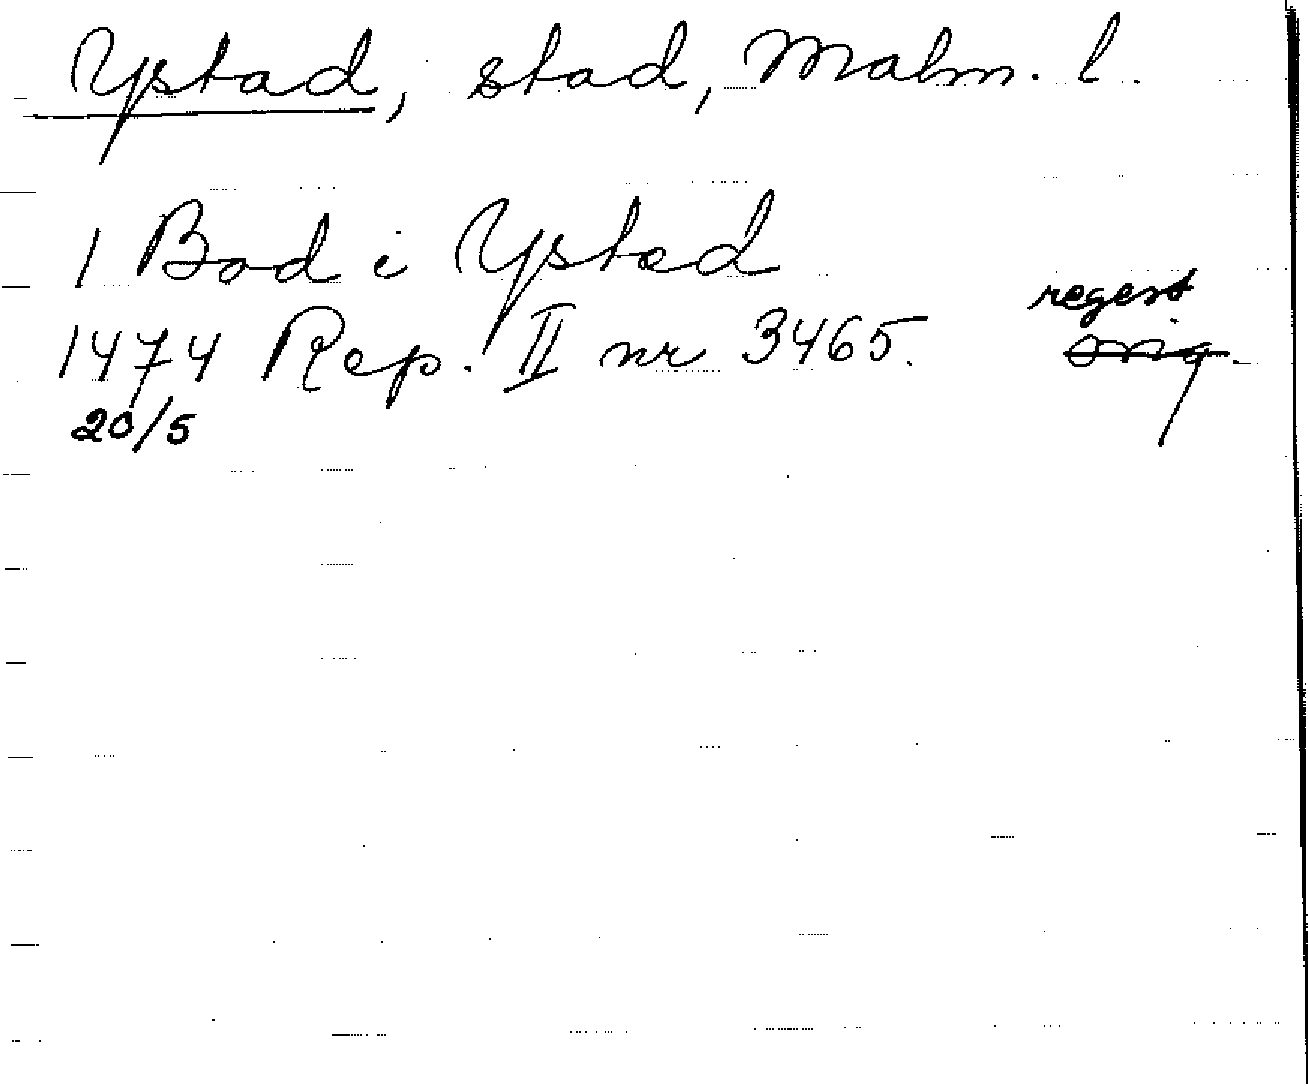 Ystad, stad, Malm. l.
1 Bod i Ystad
regest
1474 Rep. II nr 3465. orig.
20/5